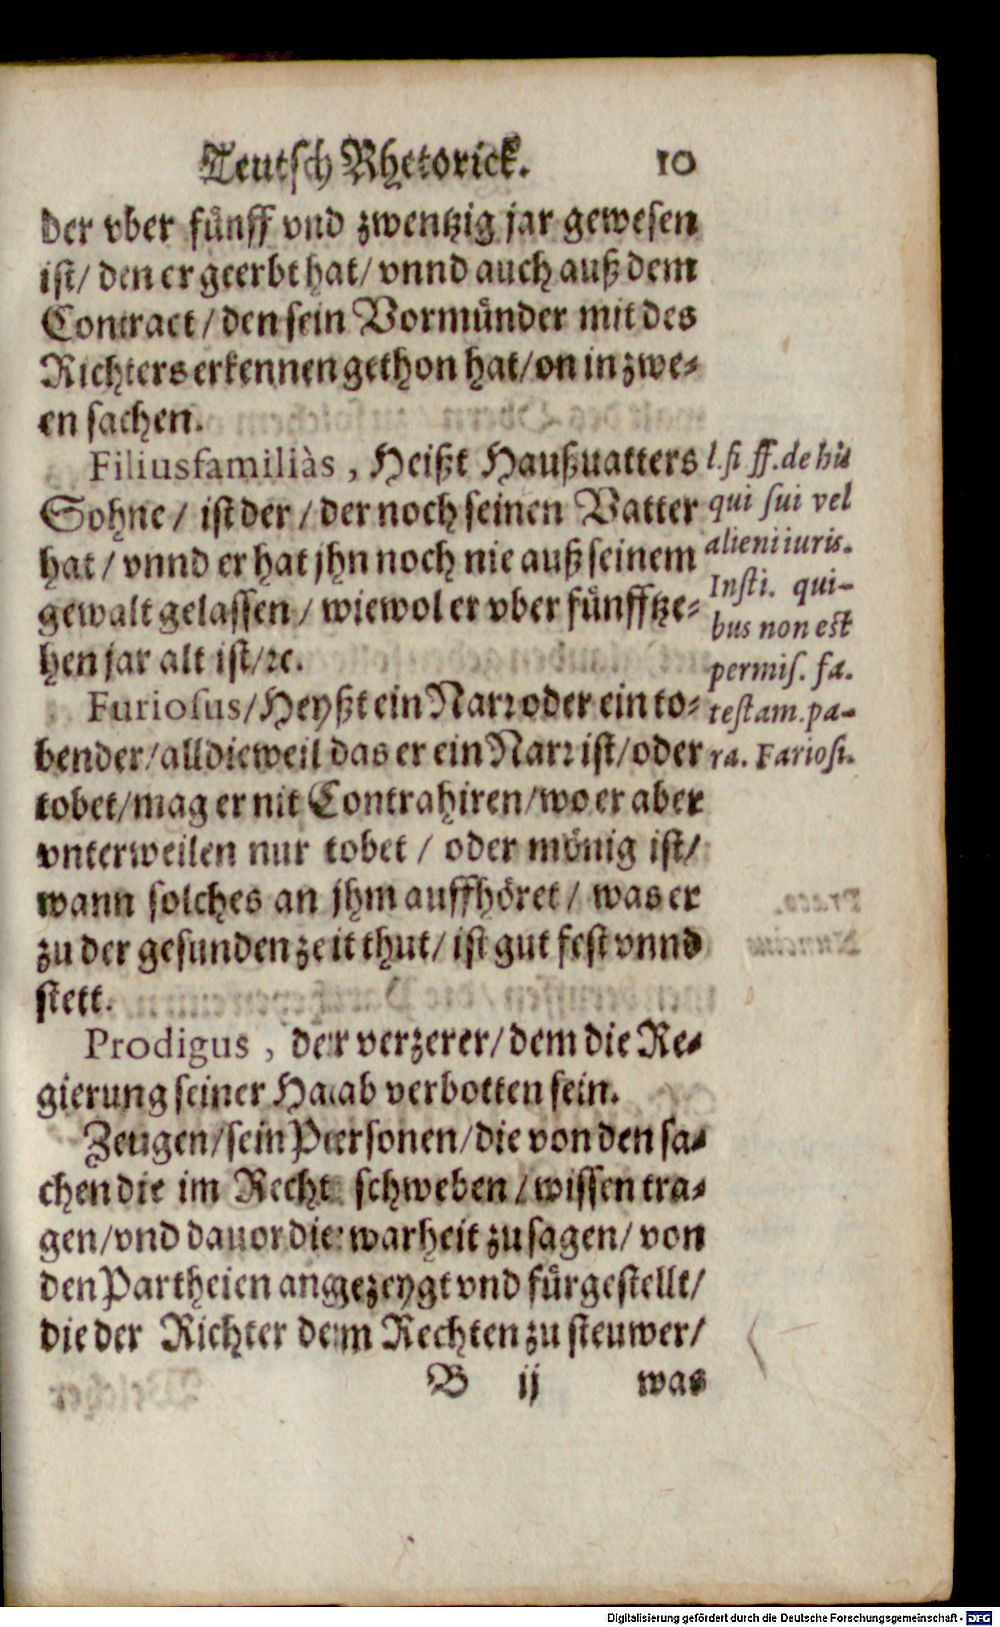 Teutsch Rhetorick. 10
der vber fünff vnd zwentzig jar gewesen
ist/ den er geerbt hat/ vnnd auch auß dem
Contract/ den sein Vormünder mit des
Richters erkennen gethon hat/ on in zwe-
en sachen.
Filiusfamiliàs, Heißt Haußuatters
Sohne/ ist der/ der noch seinen Vatter
hat/ vnnd er hat jhn noch nie auß seinem
gewalt gelassen/ wiewol er vber fünfftze-
hen jar alt ist/ ꝛc.
Furiosus/ Heyßt ein Narr oder ein to-
bender/ alldieweil das er ein Narr ist/ oder
tobet/ mag er nit Contrahiren/ wo er aber
vnterweilen nur tobet/ oder mönig ist/
wann solches an jhm auffhöret/ was er
zu der gesunden zeit thut/ ist gut fest vnnd
stett.
Prodigus, der verzerer/ dem die Re-
gierung seiner Haab verbotten sein.
Zeugen/ sein Personen/ die von den sa-
chen die im Recht schweben/ wissen tra-
gen/ vnd dauor die warheit zu sagen/ von
den Partheien angezeygt vnd fürgestellt/
die der Richter dem Rechten zu steuwer/
B ij was
l. si ff. de his
qui sui vel
alieni iuris.
Insti. qui-
bus non est
permis. fa.
testam. pa-
ra. Fariosi.
Digitalisierung gefördert durch die Deutsche Forschungsgemeinschaft - DFG